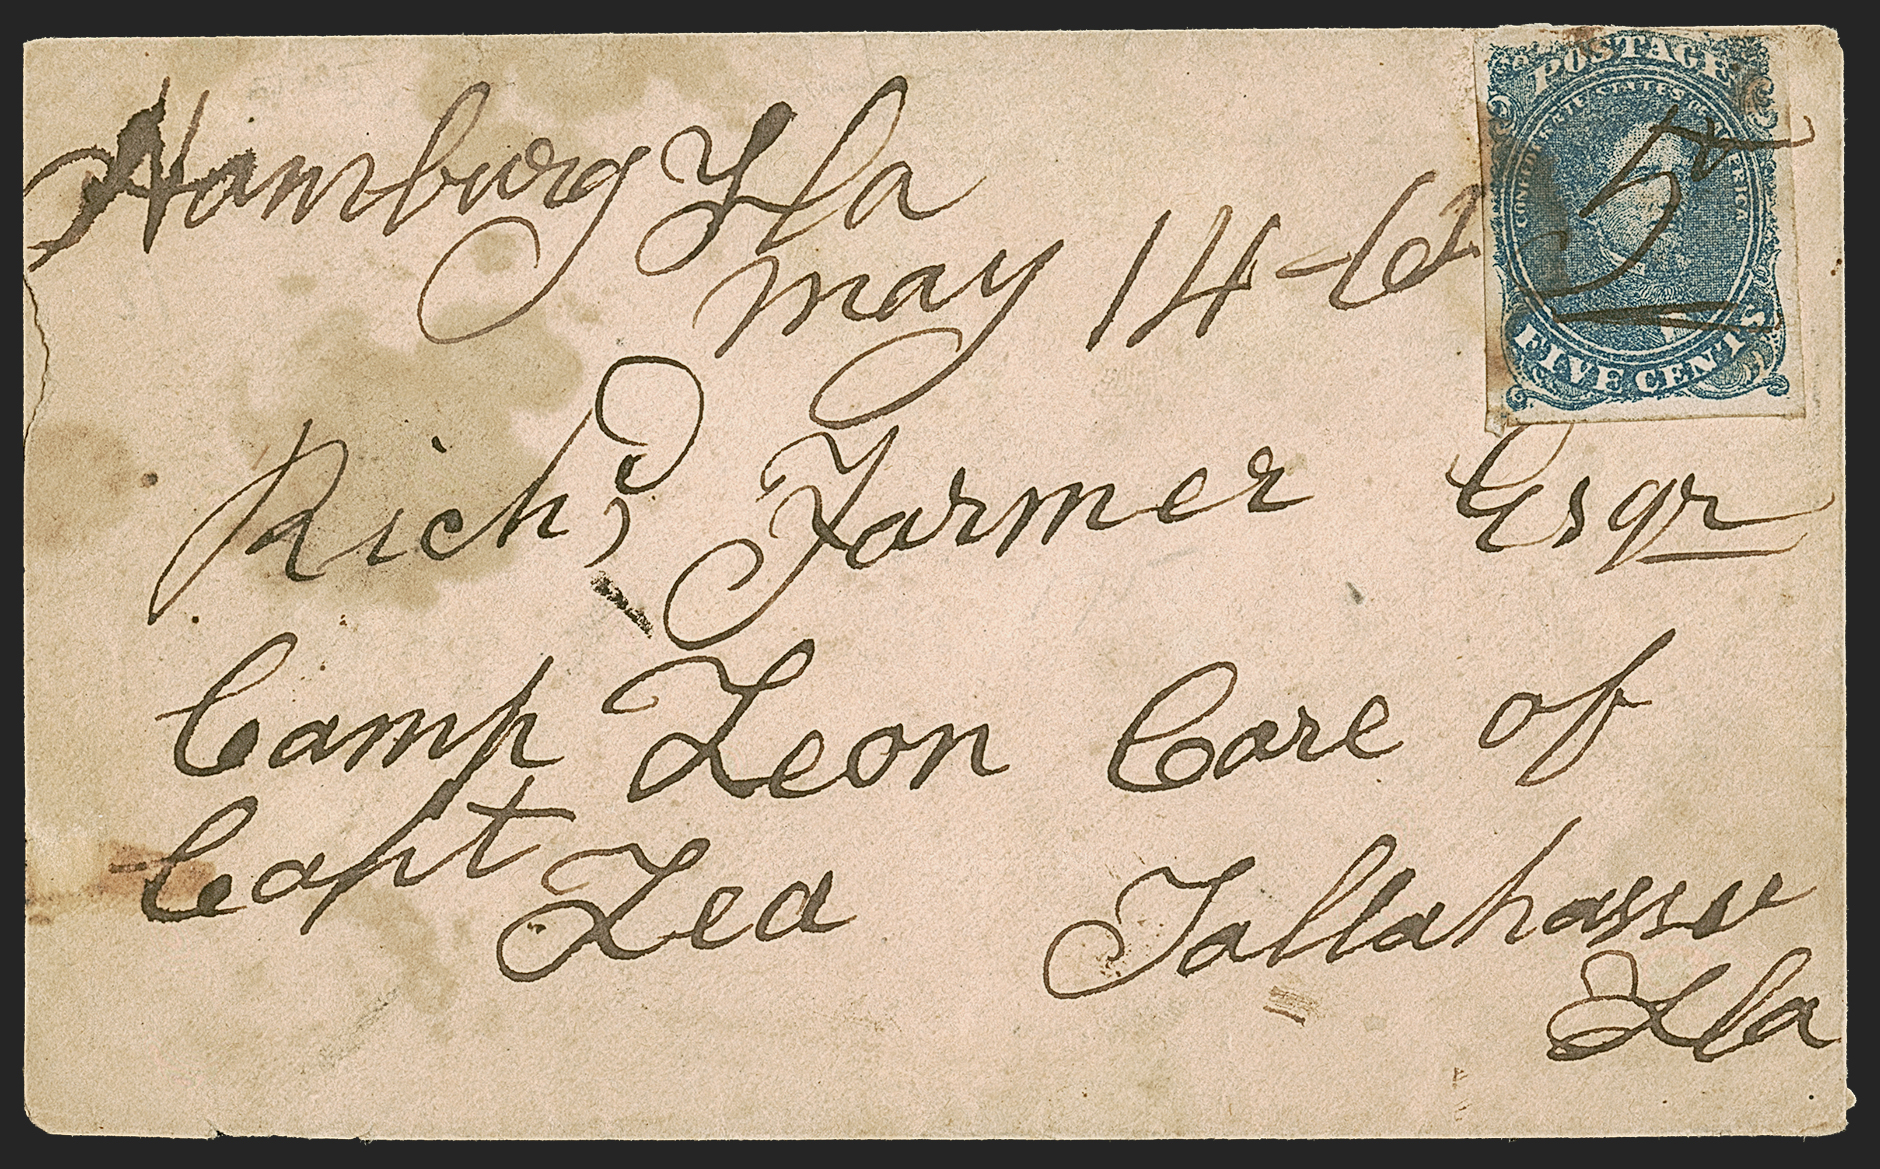 Hamburg Fla
May 14-62
POSTAGE
CONFEDERATE STATES OF AMERICA
5
FIVE CENTS
Richd Farmer Esqr
Camp Leon Care of
Capt Lea Tallahasse
Fla